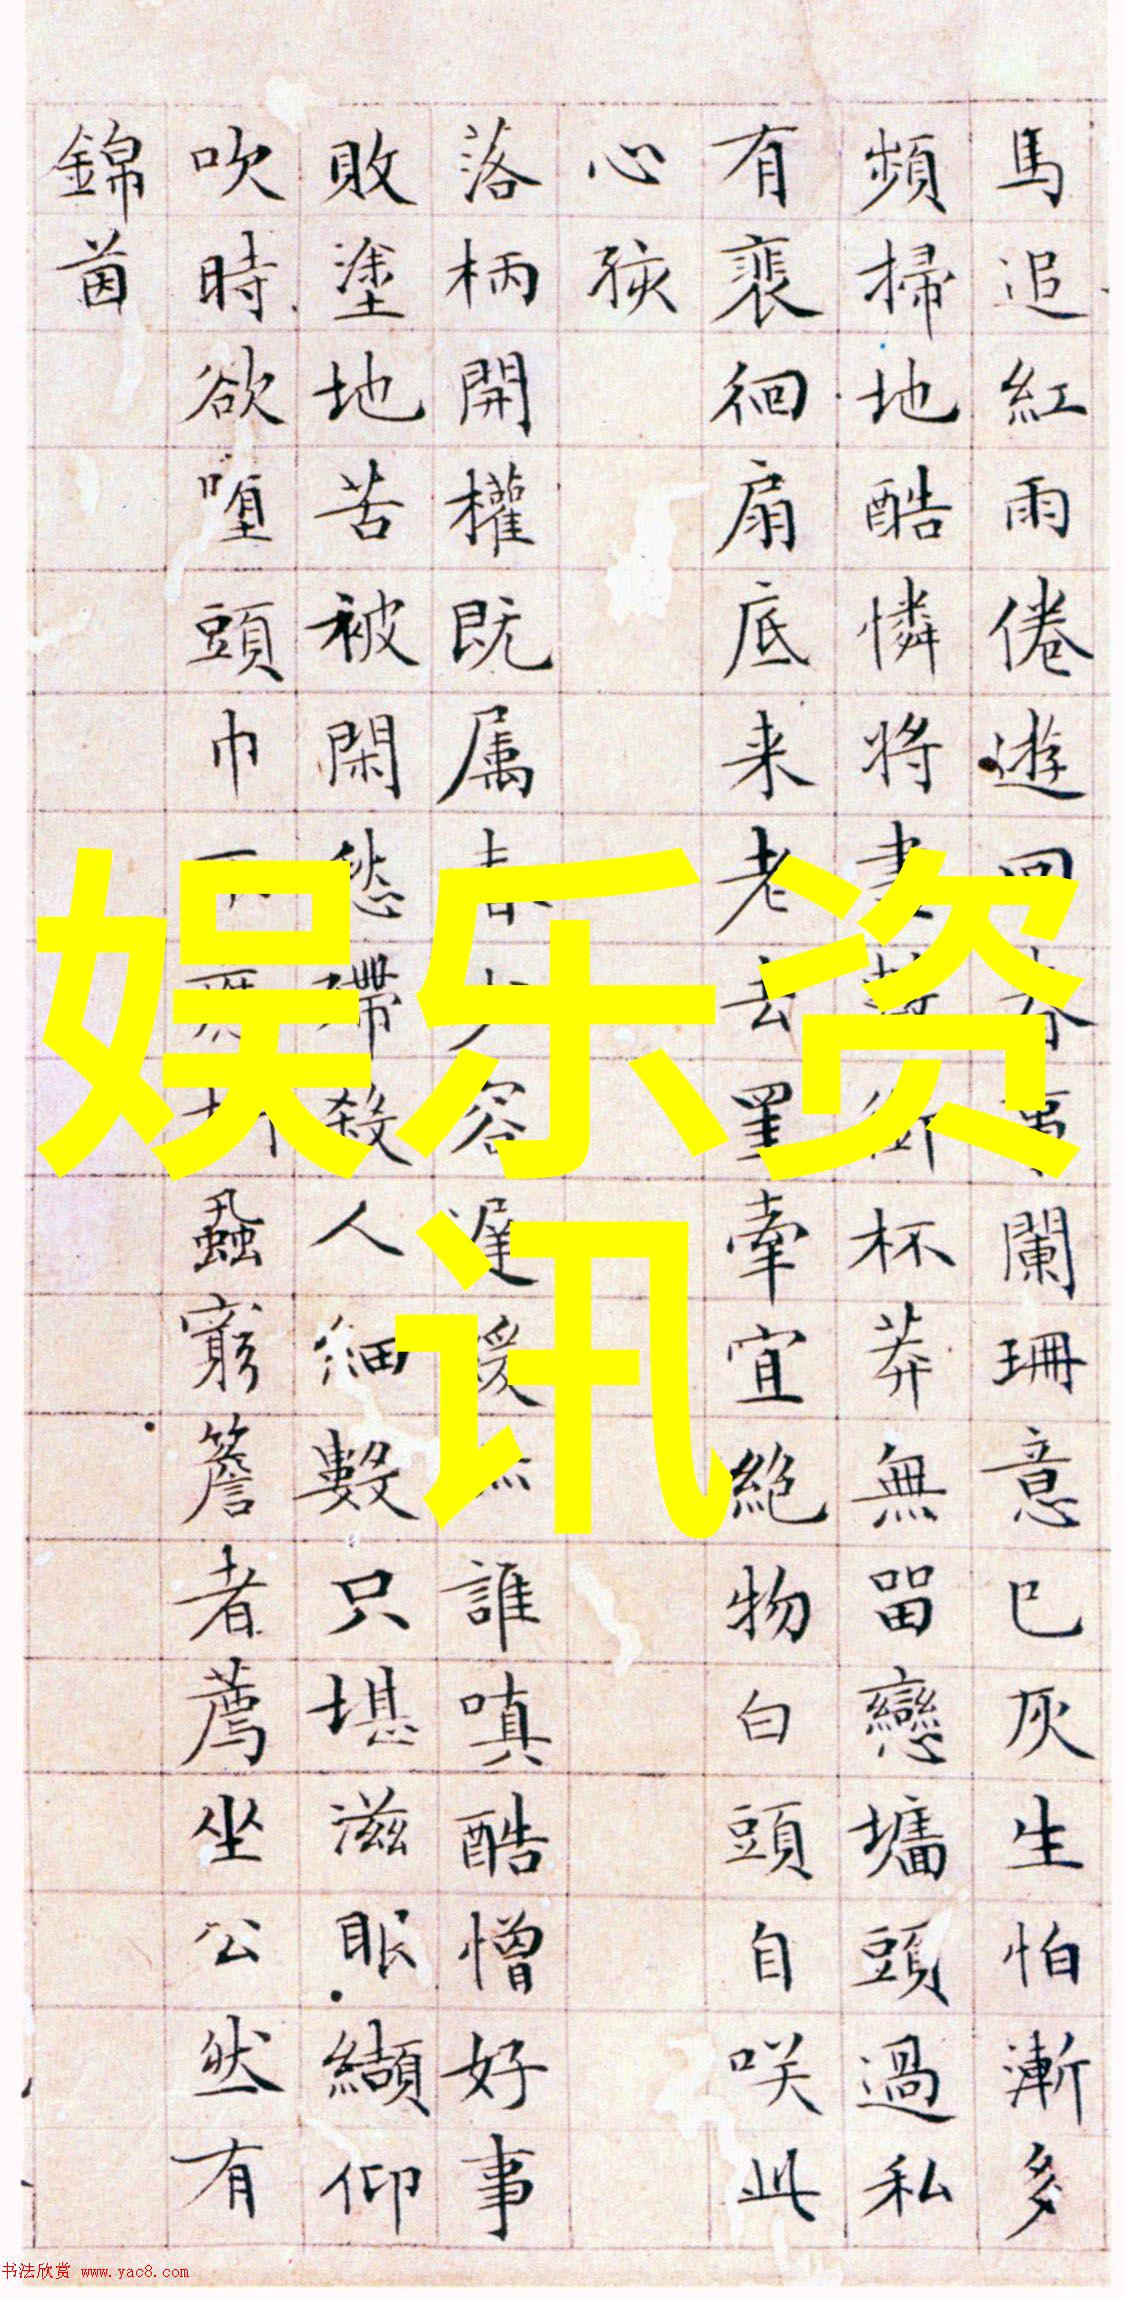 馬追紅雨倦遊春闌珊意已灰生怕漸多
頻掃地酷憐將銜杯莽無留戀墻頭過私
有裵徊扇底来老去罣牽宜絶物白頭自咲此
心孩
落柄開權既属春容遲誰嗔酷憎好事
敗塗地苦被閑愁殢殺人細數只堪滋眼纈仰
吹時欲頭巾蝨窮簷者薦坐公然有
錦茵
娱乐资
讯
书法欣赏 www.yac8.com